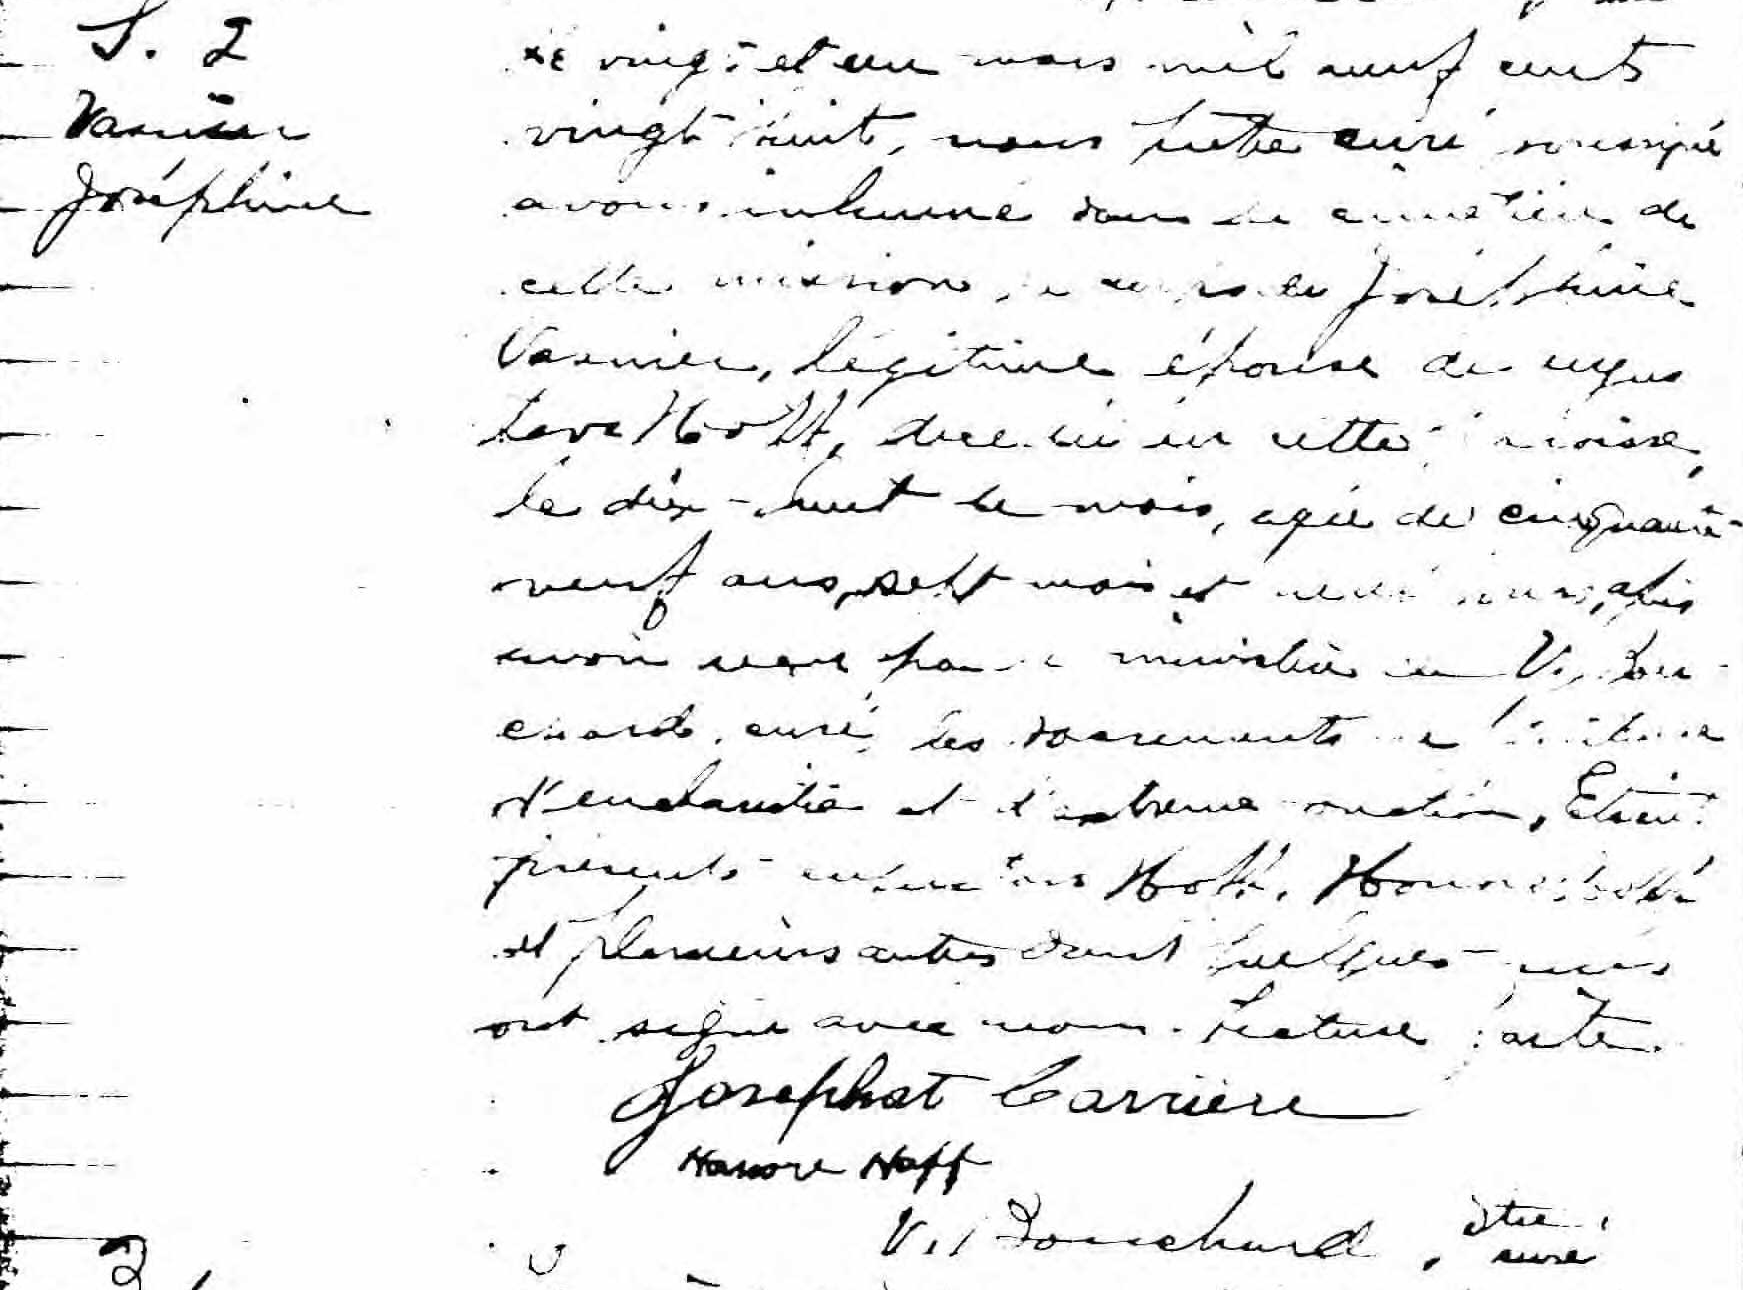 S. 2
Vasnier
Joséphine
Le vingt et un mars mil neuf cents
vingt huit, nous prêtre curé soussigné
avons inhumé dans le cimetière de
cette mission le corps de Joséphine
Vasnier, légitime épouse de
Hoff, décédée en cette paroisse,
le dix-huit de mois, agée de cinquante-
neuf ans, sept mois et jours, après
avoir reçu par le ministère de V. Bou-
chard, curé, les sacrements de
d'eucharistie et d'extreme onction. Etaient
présents Hoff, Honoré Hoff
et plusieurs autres dont quelques-uns
ont signé avec nous. Lecture faite.
Josephat Carrière
Honore Hoff
V. Bouchard, ptre
curé